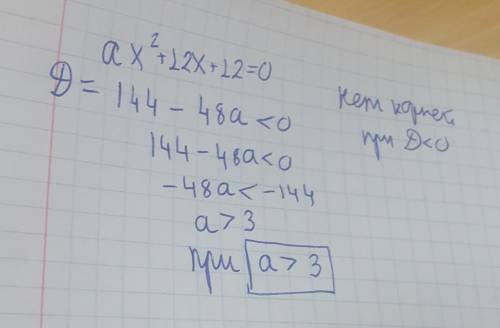 ax²+12x+12=0
D = 144 - 48a < 0
144 - 48a < 0
-48a < -144
a > 3
при a > 3
нет корней
при D < 0